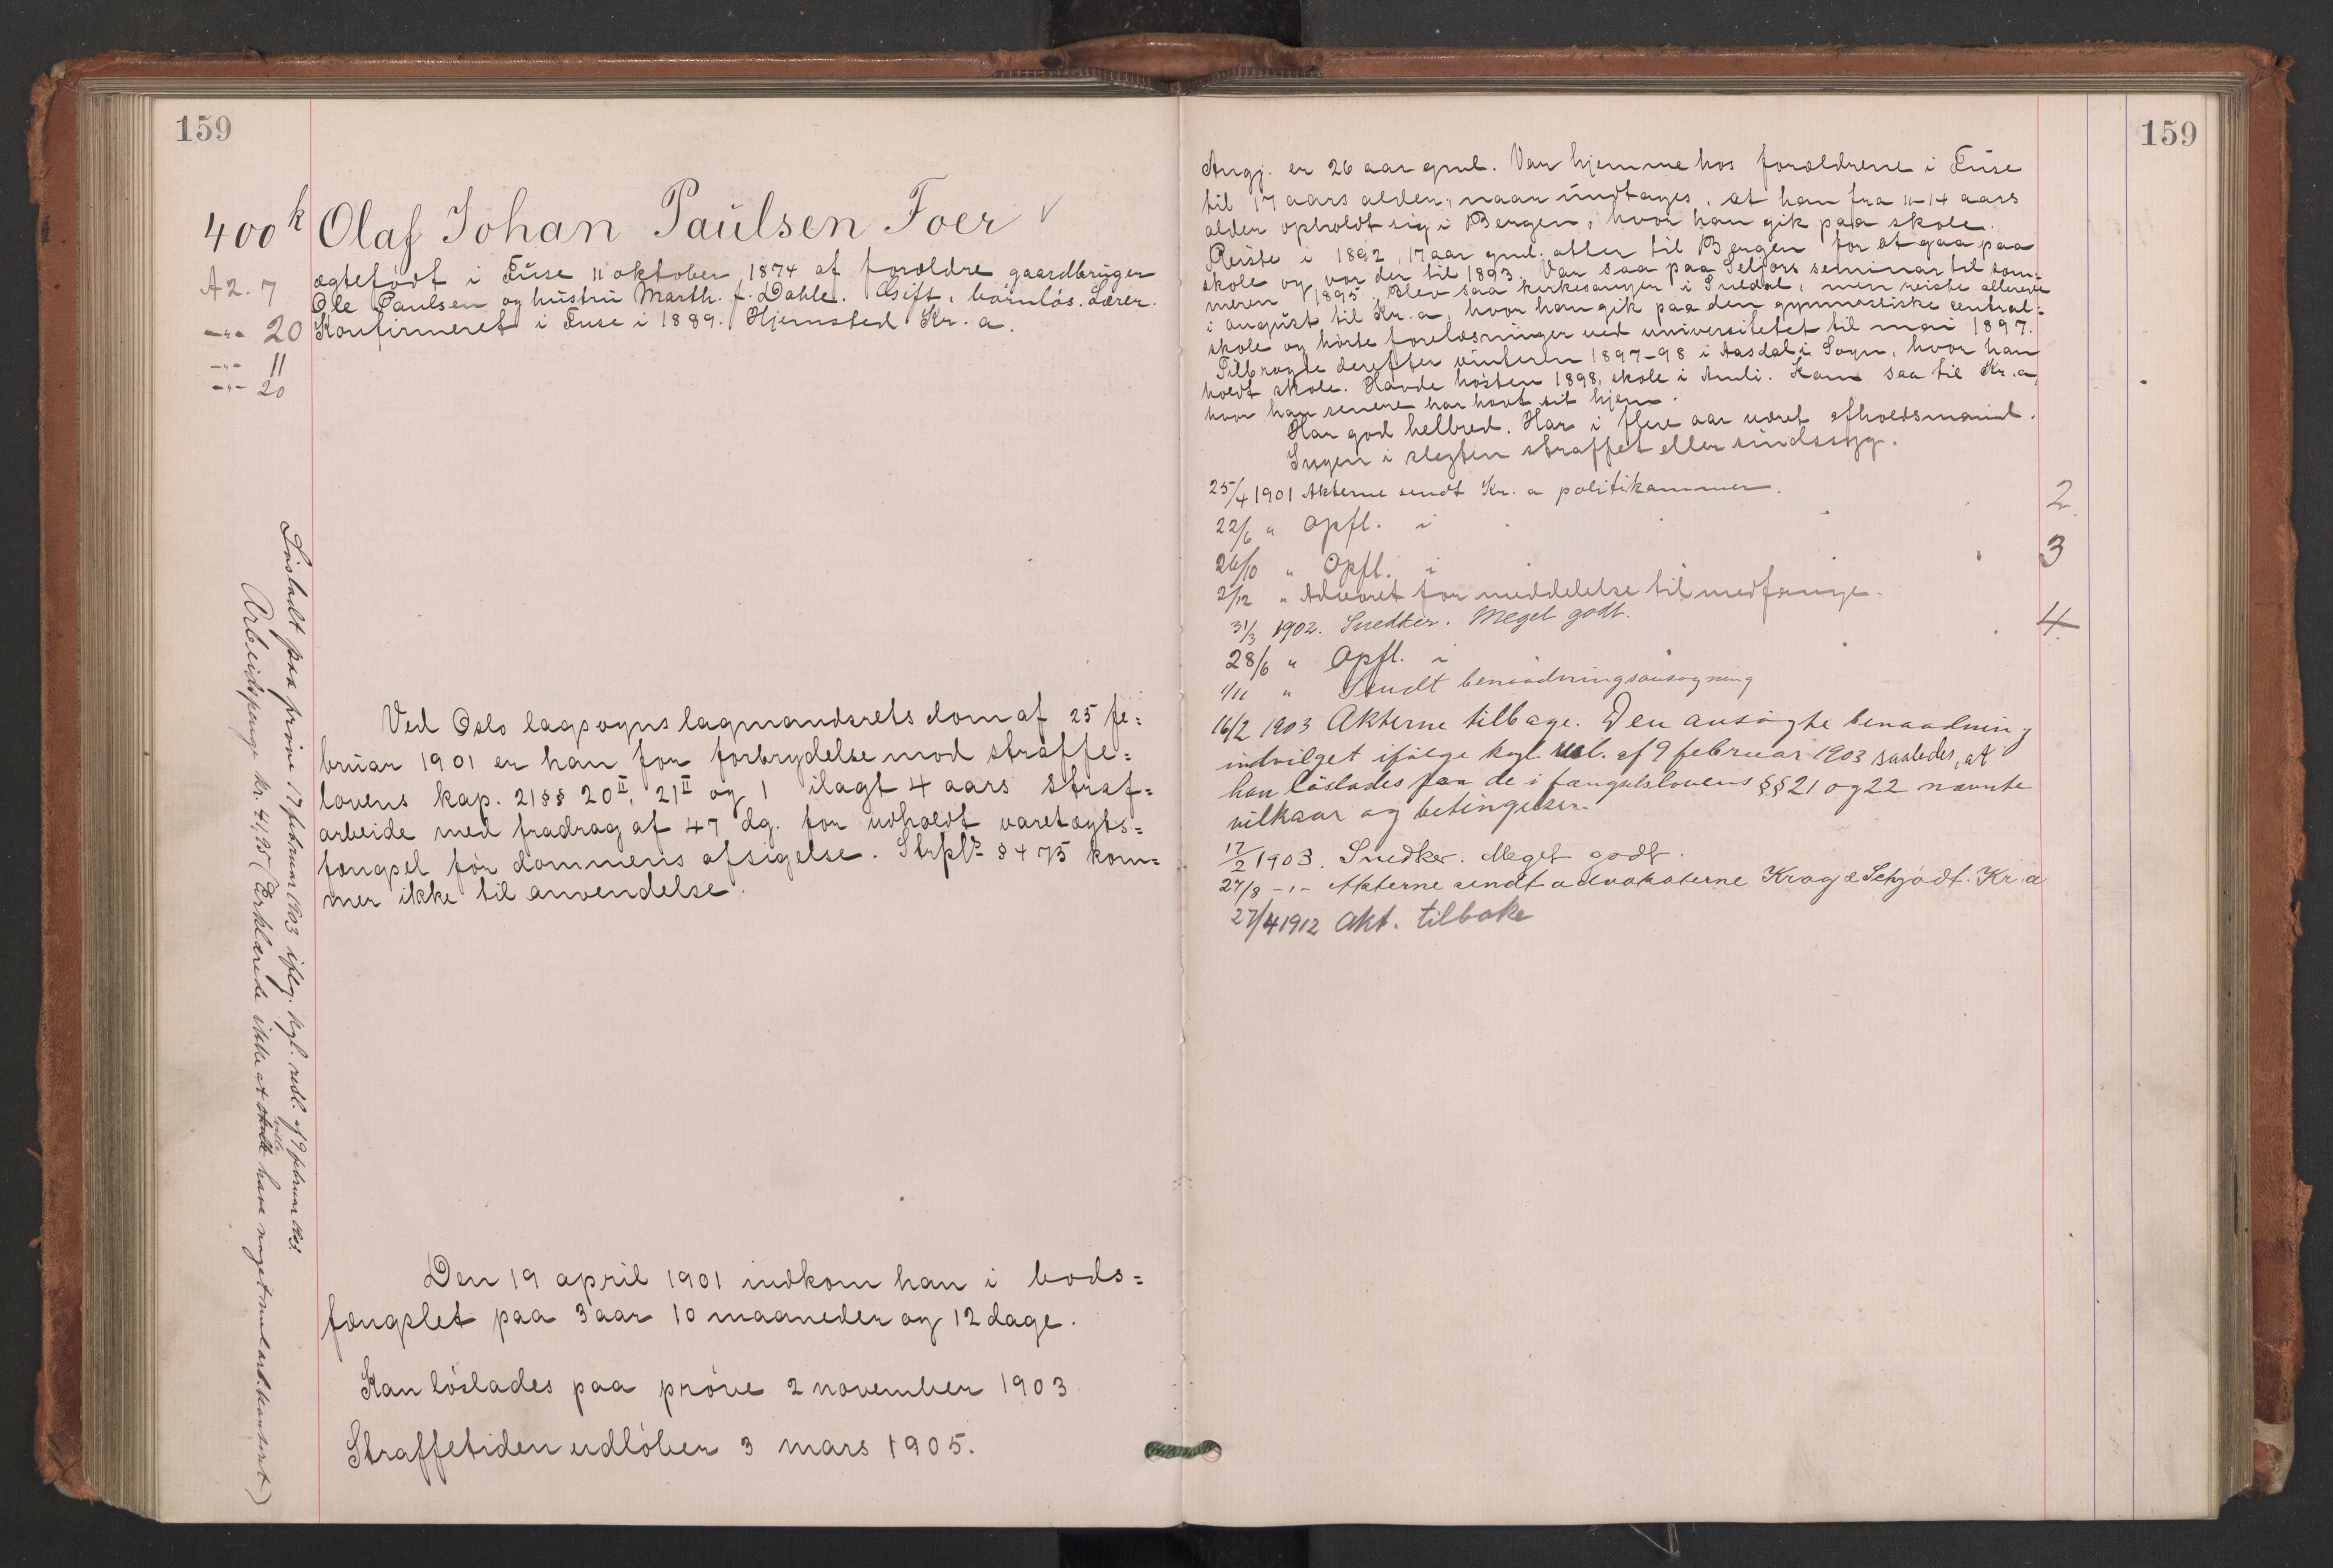 159
400k Olaf Johan Paulsen Foer ✓
A2. 7
-"- 20
-"- 11
-"- 20
ægtefødt i Fuse 11 oktober 1874 af forældre gaardbruger
Ole Paulsen og hustru Marth. f. Dahle. Gift, børnløs. Lærer.
Konfirmeret i Fuse i 1889. Hjemsted Kr.a.
Ved Oslo lagsogns lagmandsrets dom af 25 fe=
bruar 1901 er han for forbrydelse mod straffe=
lovens kap. 21 §§ 20 II, 21 II og 1 ilagt 4 aars straf=
arbeide med fradrag af 47 dg. for udholdt varetægts=
fængsel før dommens afsigelse. Strpl § 475 kom=
mer ikke til anvendelse.
Den 19 april 1901 indkom han i bods=
fængslet paa 3 aar 10 maaneder og 12 dage.
Kan løslades paa prøve 2 november 1903
Straffetiden udløber 3 mars 1905.
Løsladt paa prøve 17 februar 1903 iflg. kgl. resl. af 9 februar 1903.
Arbeidspenge kr. 41,95 (Erklærede ikke at ville have noget mel. arb. kontoret)
159
Angj. er 26 aar gml. Var hjemme hos forældrene i Fuse
til 17 aars alder, naar undtages, at han fra 11-14 aars
alder opholdt sig i Bergen, hvor han gik paa skole.
Reiste i 1892, 17 aar gml. atter til Bergen for at gaa paa
skole og var der til 1893. Var saa paa Seljors seminar til som=
meren 1895. Blev saa kirkesanger i Suldal, men reiste allerede
i august til Kr.a, hvor han gik paa den gymnastiske central=
skole og hørte forelæsninger ved universitetet til mai 1897.
Tilbragte derefter vinteren 1897-98 i Aasdal i Sogn, hvor han
holdt skole. Havde høsten 1898, skole i Amli. Kom saa til Kr.a,
hvor han senere har havt sit hjem.
Har god helbred. Har i flere aar været afholdsmand.
Ingen i slegten straffet eller sindssyg.
25/4 1901 Akterne sendt Kr.a politikammer.
22/6 " Opfl. i 2.
26/10 " Opfl. i 3
2/12 " Advaret for meddelelse til medfange.
31/3 1902. Snedker. Meget godt.
28/6 " Opfl. i 4.
1/11 " Sendt benaadningsansøgning
16/2 1903 Akterne tilbage. Den ansøgte benaadning
indvilget ifølge kgl. resl. af 9 februar 1903 saaledes, at
han løslades paa de i fængselslovens §§ 21 og 22 nævnte
vilkaar og betingelser.
17/2 1903. Snedker. Meget godt.
27/8 -"- Akterne sendt advokaterne Krag & Schjødt. Kr.a
27/4 1912 Akt. tilbake